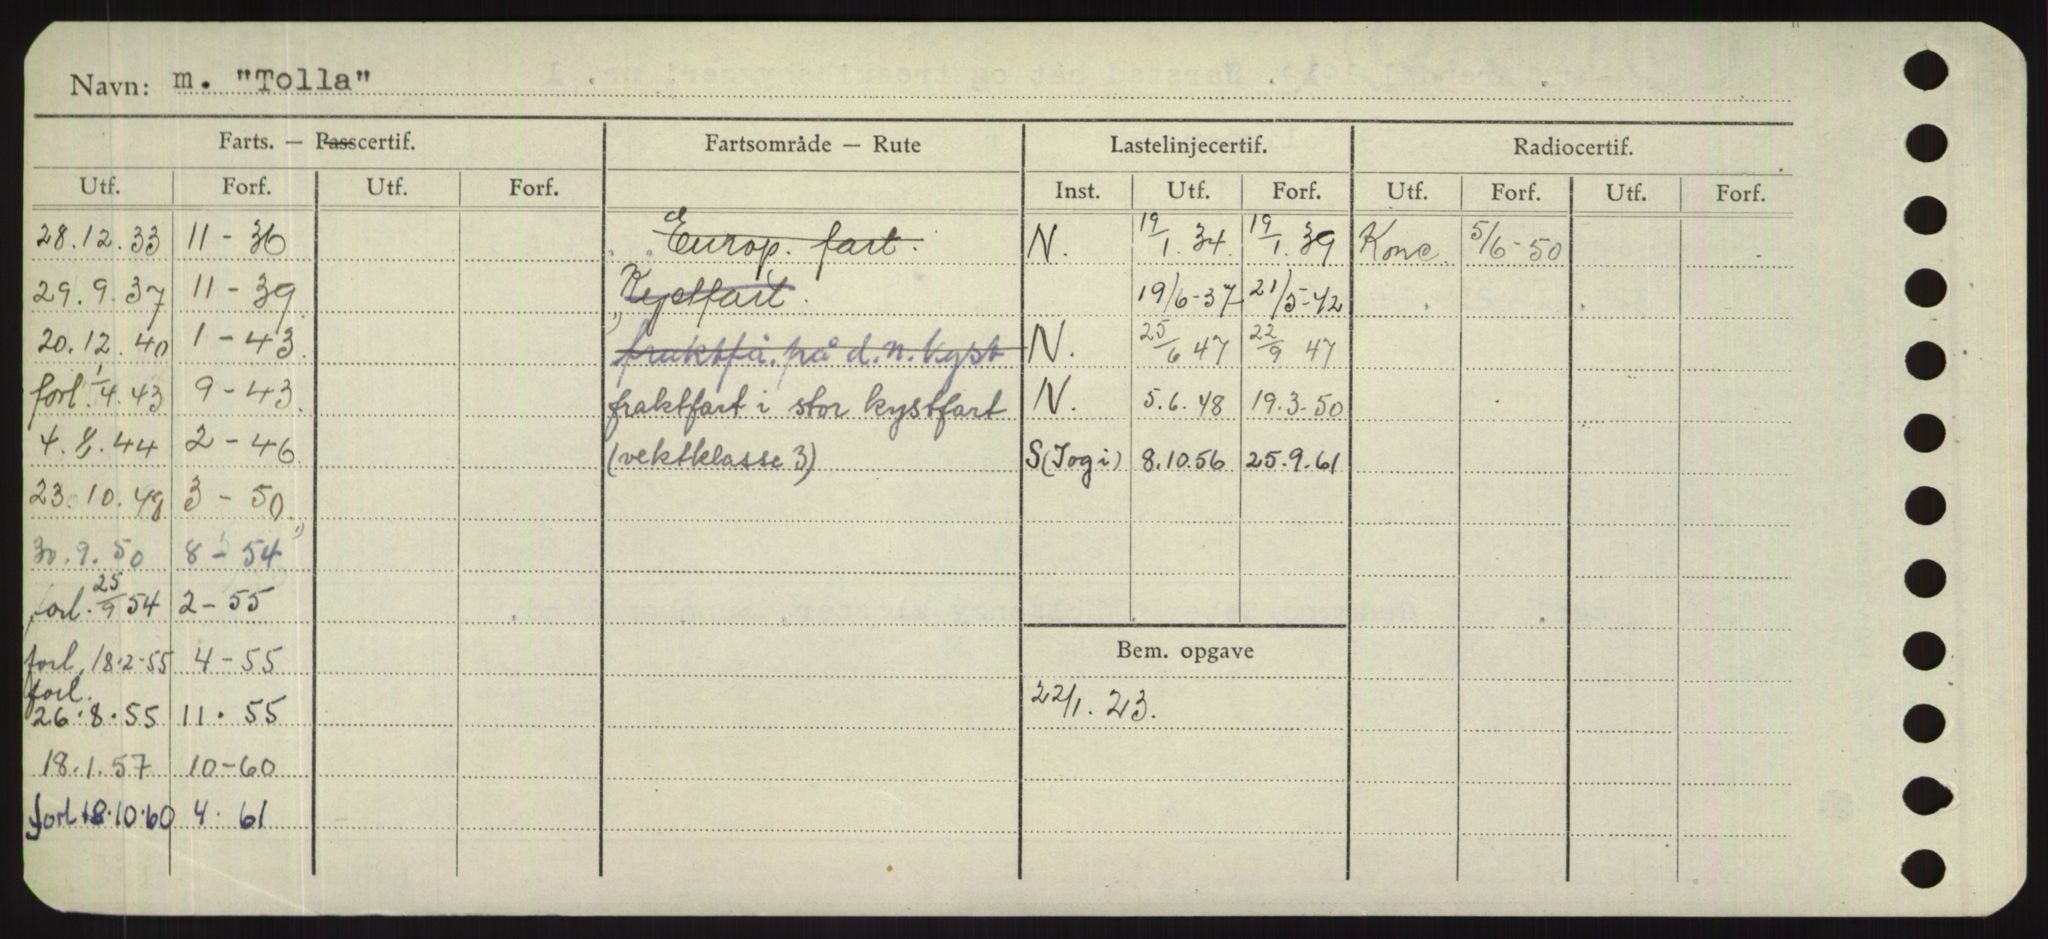 Navn: m. "Tolla"
Farts. — Passcertif. Fartsområde — Rute Lastelinjecertif. Radiocertif.
Utf. Forf. Utf. Forf. Inst. Utf. Forf. Utf. Forf. Utf. Forf.
28.12.33 11 - 36 Europ. fart. N. 19/1. 34. 19/1. 39 Konc. 5/6-50
29.9.37 11 - 39 Kystfart. 19/6-37 21/5-42
20.12.40 1 - 43 fraktfa. på d. n. kyst N. 25/6 47 22/9 47
forl. 1/4.43 9 - 43 fraktfart i stor kystfart N. 5.6.48 19.3.50
4.8.44 2 - 46 (vektklasse 3) S(Jogi) 8.10.56 25.9.61
23.10.48 3 - 50
30.9.50 8 - 54
forl. 25/9 54 2 - 55
forl. 18.2-55 4 - 55
Bem. opgave
forl.
26.8.55 11. 55 22/1. 23.
18.1.57 10-60
forl 18.10.60 4. 61